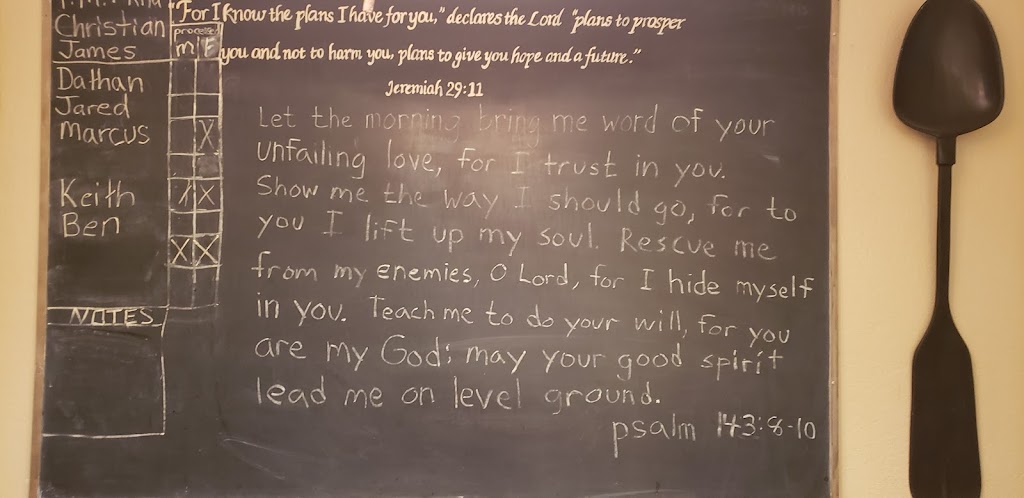 Christian
James
Dathan
Jared
Marcus
Keith
Ben
NOTES
M F
X
X X
X X
"For I know the plans I have for you," declares the Lord "plans to prosper
you and not to harm you, plans to give you hope and a future."
Jeremiah 29:11
Let the morning bring me word of your
unfailing love, for I trust in you.
Show me the way I should go, for to
you I lift up my soul. Rescue me
from my enemies, O Lord, for I hide myself
in you. Teach me to do your will, for you
are my God; may your good spirit
lead me on level ground.
psalm 143:8-10